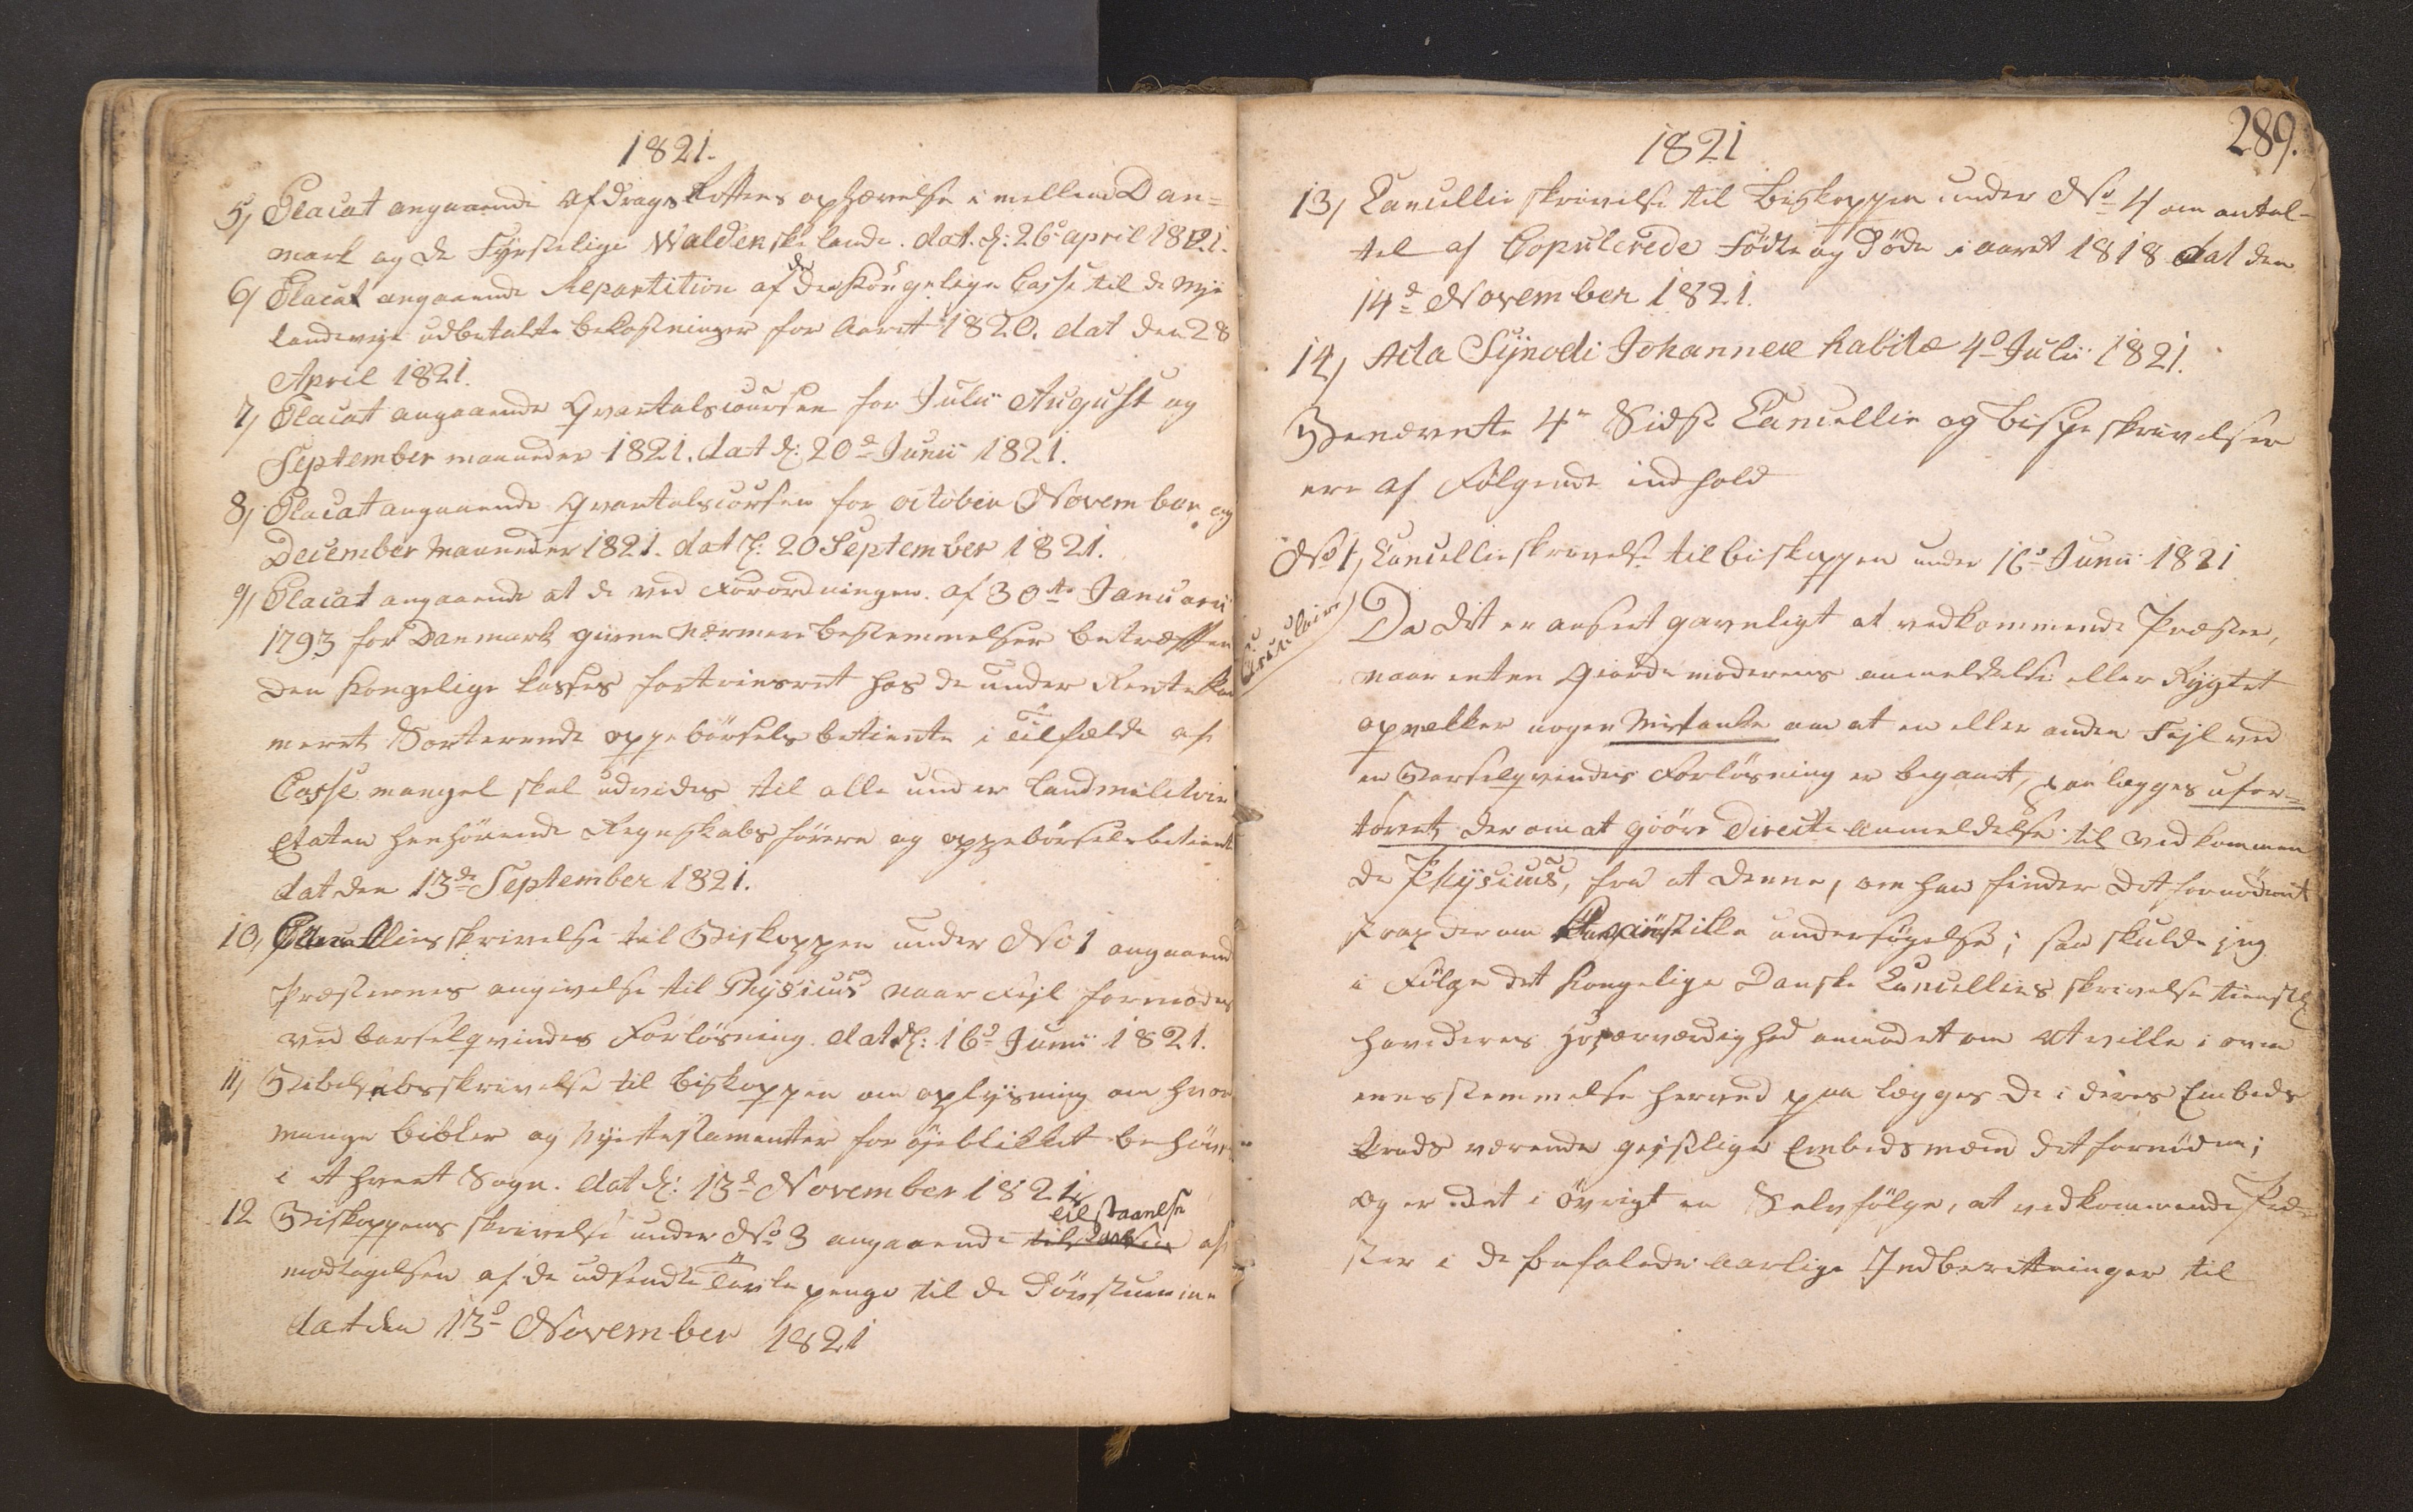 1821.
5, Placat angaaende Afdrags Rettens ophævelse imellem Dan=
mark og de Fyrstelige Waldenske lande. dat. d: 26 april 1821.
6, Placat angaaende Repartition af de den Kongelige Casse til de nye
landeveje udbetalte bekostninger for Aaret 1820. dat den 28
April 1821.
7, Placat angaaende Qvartalscoursen for Julii August og
September maaneder 1821. dat d: 20d Junii 1821.
8, Placat angaaende Qvartalscoursen for october November og
December Maaneder 1821. dat d: 20 September 1821.
9, Placat angaaende at de ved Forordningen af 30te Januarii
1793 for Danmark givne nærmere bestemmelser betræffen
den Kongelige Casses fortrinsret hos de under Rentekam
meret Sorterende oppebörsels betiente i Tilfælde af
Casse mangel skal udvides til alle under Landmilitair
Etaten henhörende Regnskabsförere og oppebörselsbetiente
dat den 13de September 1821.
10, Cancellieskrivelse til Biskoppen under No 1 angaaende
Præsternes angivelse til Physicus naar Fejl formodes
ved barselqvindes Forlösning. dat d: 16d Junii 1821.
11, Bibelselskabsskrivelse til biskoppen om oplysning om hvor
mange bibler og Nyetestamenter for öjeblikket behöves
i et hvert Sogn. dat d: 13d November 1821.
12 Biskoppens skrivelse under No 3 angaaende tilstaaelse af
modtagelsen af de udsendte Tavlepenge til de Dövstumme
dat den 13d November 1821
289.
1821
13, Cancellie skrivelse til Biskoppen under No 4 om antal-
tel af Copulerede Födte og Döde i aaret 1818 dat den
14d November 1821.
14, Acta Synodi Johanneæ habitæ 4d Julii 1821.
Benævnte 4re Sidste Cancellie og bispeskrivelser
ere af Fölgende indhold
No 1, Cancellieskrivelse til biskoppen under 16d Junii 1821
Circulaire
Da det er anseet gavnligt at vedkommende Præster,
naar enten Giordemoderens anmeldelse eller Rygtet
opvækker nogen Mistanke om at en eller anden Fejl ved
en Barselqvindes Forlösning er begaaet, paalægges ufor=
tövet derom at giöre directe Anmeldelse til vedkommen
de Physicus, for at denne, om han finder det fornödent
strax derom kan anstille undersögelse; saa skulde jeg
i Fölge det Kongelige Danske Cancellies skrivelse tienstl
have deres Höjærværdighed anmodet om at ville i over
eensstemmelse herved paalægges de i deres Embeds
kreds værende gejstlige Embedsmænd det fornödne;
og er det i övrigt en Selvfölge, at vedkommende Præ=
ster i de befalede aarlige Indberetninger til